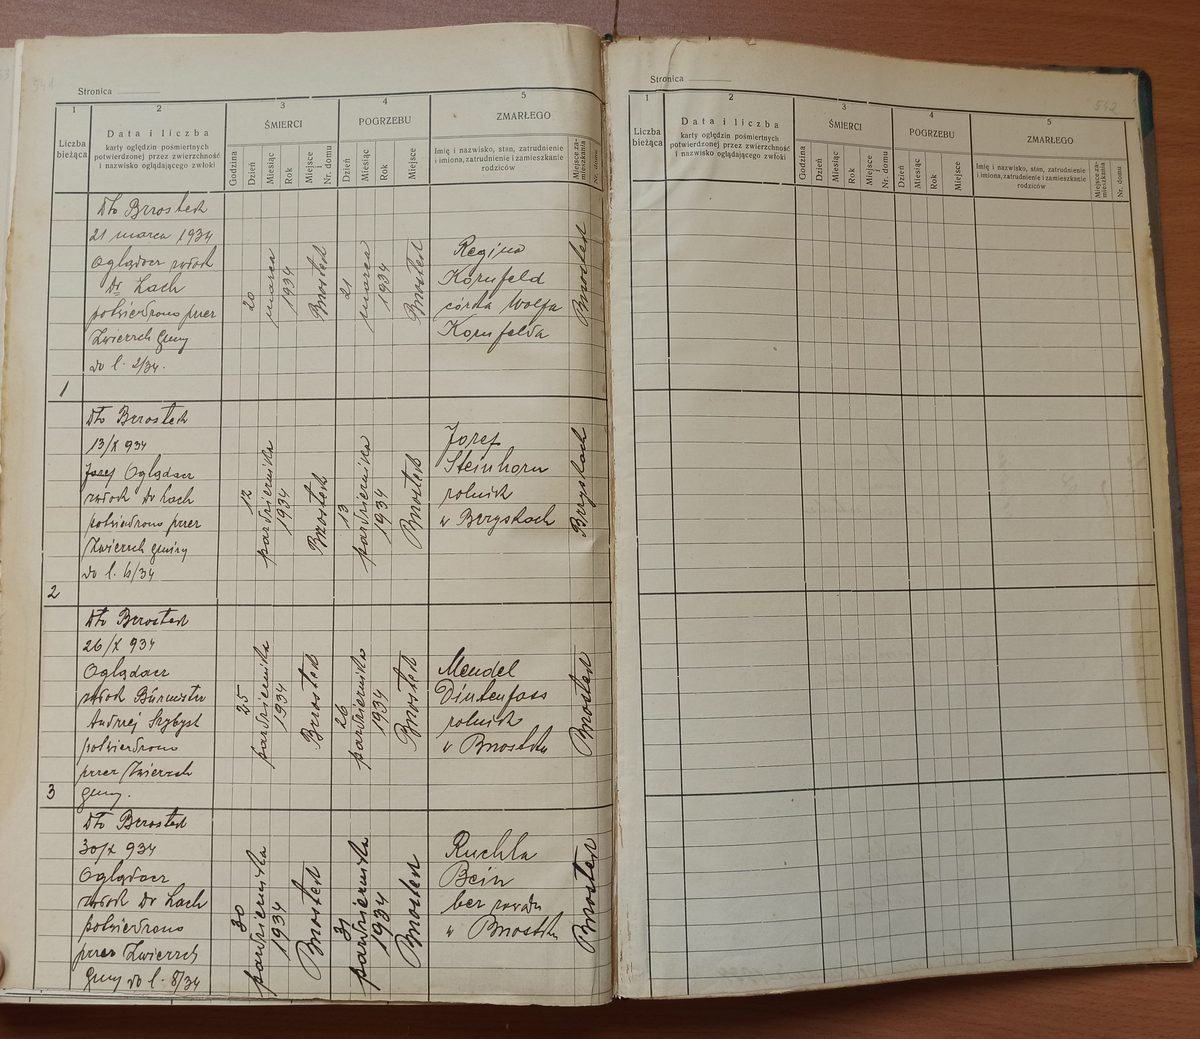 541
Stronica
1
2
3
4
5
Liczba bieżąca
Data i liczba
karty oględzin pośmiertnych
potwierdzonej przez zwierzchność
i nazwisko oglądającego zwłoki
ŚMIERCI
Godzina
Dzień
Miesiąc
Rok
Miejsce
Nr. domu
POGRZEBU
Dzień
Miesiąc
Rok
Miejsce
ZMARŁEGO
Imię i nazwisko, stan, zatrudnienie
i imiona, zatrudnienie i zamieszkanie
rodziców
Miejsce zamieszkania
Nr. domu
1
Dto Brzostek
21 marca 1934
Oglądacz zwłok
Dr Lach
potwierdzono przez
Zwierzch Gminy
do l. 2/34.
20
marca
1934
Brzostek
21
marca
1934
Brzostek
Regina
Kornfeld
córka Wolfa
Kornfelda
Brzostek
2
Dto Brzostek
13/X 934
Józef Oglądacz
zwłok Dr Lach
potwierdzono przez
Zwierzch gminy
do l. 6/34
12
października
1934
Brzostek
13
października
1934
Brzostek
Jozef
Steinhorn
rolnik
w Bryskach
3
Dto Brzostek
26/X 934
Oglądacz
zwłok
Andrzej
potwierdzono
przez Zwierzch
gminy.
25
października
1934
Brzostek
26
października
1934
Brzostek
Mendel
Dintenfass
rolnik
w Brzostku
Brzostek
Dto Brzostek
30/X 934
Oglądacz
zwłok Dr Lach
potwierdzono
przez Zwierzch
Gminy do l. 8/34
30
października
1934
Brzostek
31
października
1934
Brzostek
Ruchla
Bein
bez zawodu
w Brzostku
Brzostek
542
Stronica
1
2
3
4
5
Liczba bieżąca
Data i liczba
karty oględzin pośmiertnych
potwierdzonej przez zwierzchność
i nazwisko oglądającego zwłoki
ŚMIERCI
Godzina
Dzień
Miesiąc
Rok
Miejsce i
Nr. domu
POGRZEBU
Dzień
Miesiąc
Rok
Miejsce
ZMARŁEGO
Imię i nazwisko, stan, zatrudnienie
i imiona, zatrudnienie i zamieszkanie
rodziców
Miejsce zamieszkania
Nr. domu